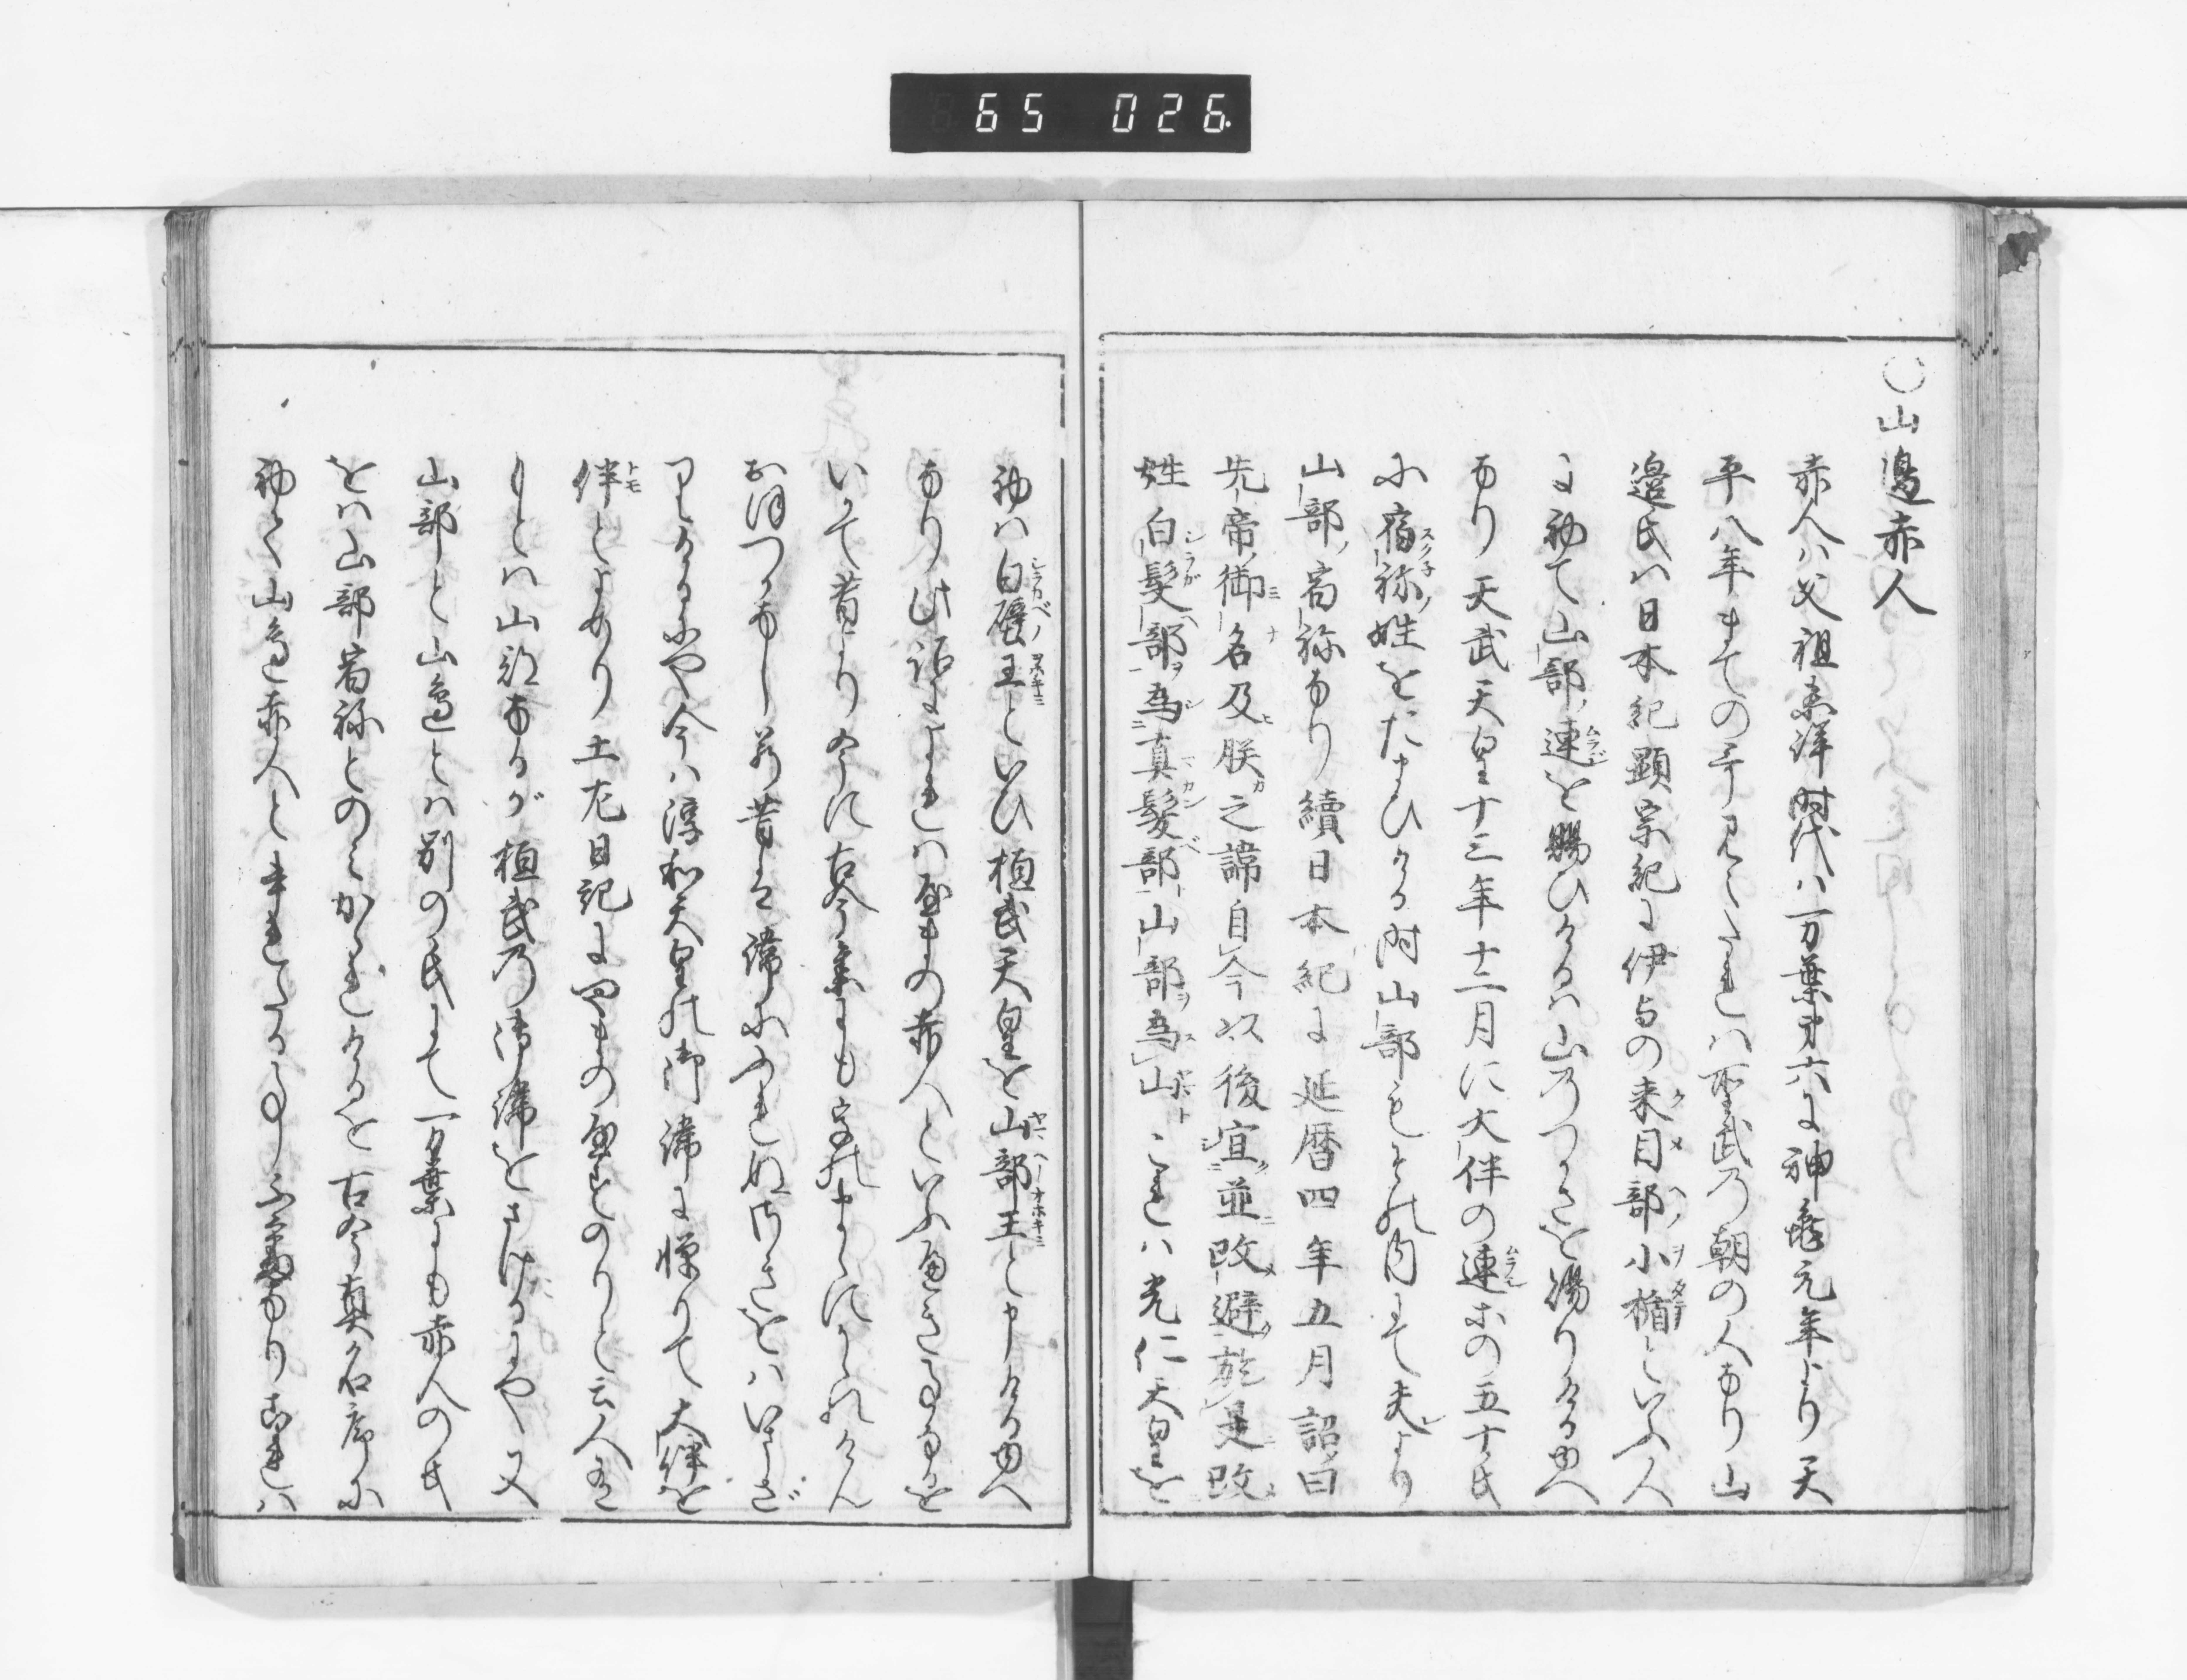 65 026
○山邊赤人
赤人ハ父祖未詳時代ハ万葉第六に神亀元年より天
平八年まての哥見えたれハ聖武乃朝の人なり山
邉氏ハ日本紀顕宗紀に伊与の来目部小楯といふ人
に初て山部連を賜ひけるハ山乃つかさを賜りけるゆへ
なり天武天皇十三年十二月に大伴の連等の五十氏
に宿祢姓をたまひける時山部もその内にて夫より
山部宿祢なり續日本紀に延暦四年五月詔曰
先帝御名及朕之諱自今以後宜並改避於是改
姓白髪部為真髪部山部為山これハ光仁天皇を
初ハ白壁王といひ桓武天皇を山部王と申けるゆへ
なり此詔によれハ山の赤人といふへきことなるを
いかて昔より今に古今集にも
おほつかなし若昔は諱にふれぬ御さをハいまだ
けるにや今ハ淳和天皇の御諱に憚りて大伴を
伴とよめり土左日記に山もの とのりと云人は
もとハ山部なるが桓武乃御諱をさけたるにや又
山部と山邉とハ別の氏にて万葉にも赤人の氏
をハ山部宿祢とのみかかれけるを古今真名序に
初て山邉赤人とかきたること不審なりされハ